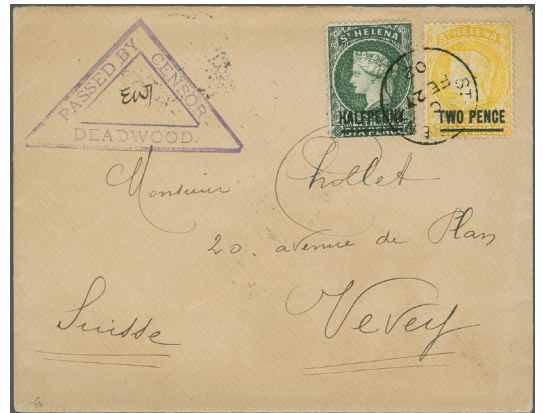 PASSED BY CENSOR
DEADWOOD.
ST HELENA
HALFPENNY
SIX PENCE
ST HELENA
TWO PENCE
Monsieur Chollet
20. avenue de Plan
Vevey
Suisse